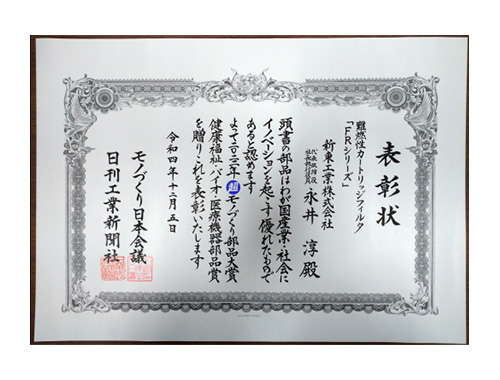 表彰状
難燃性カートリッジフィルタ
「FRシリーズ」
新東工業株式会社
代表取締役
社長執行役員
永井 淳 殿
頭書の部品はわが国産業・社会に
イノベーションを起こす優れたもので
あると認めます
よって二〇二二年超モノづくり部品大賞
健康福祉・バイオ・医療機器部品賞
を贈りこれを表彰いたします
令和四年十二月五日
モノづくり日本会議
日刊工業新聞社